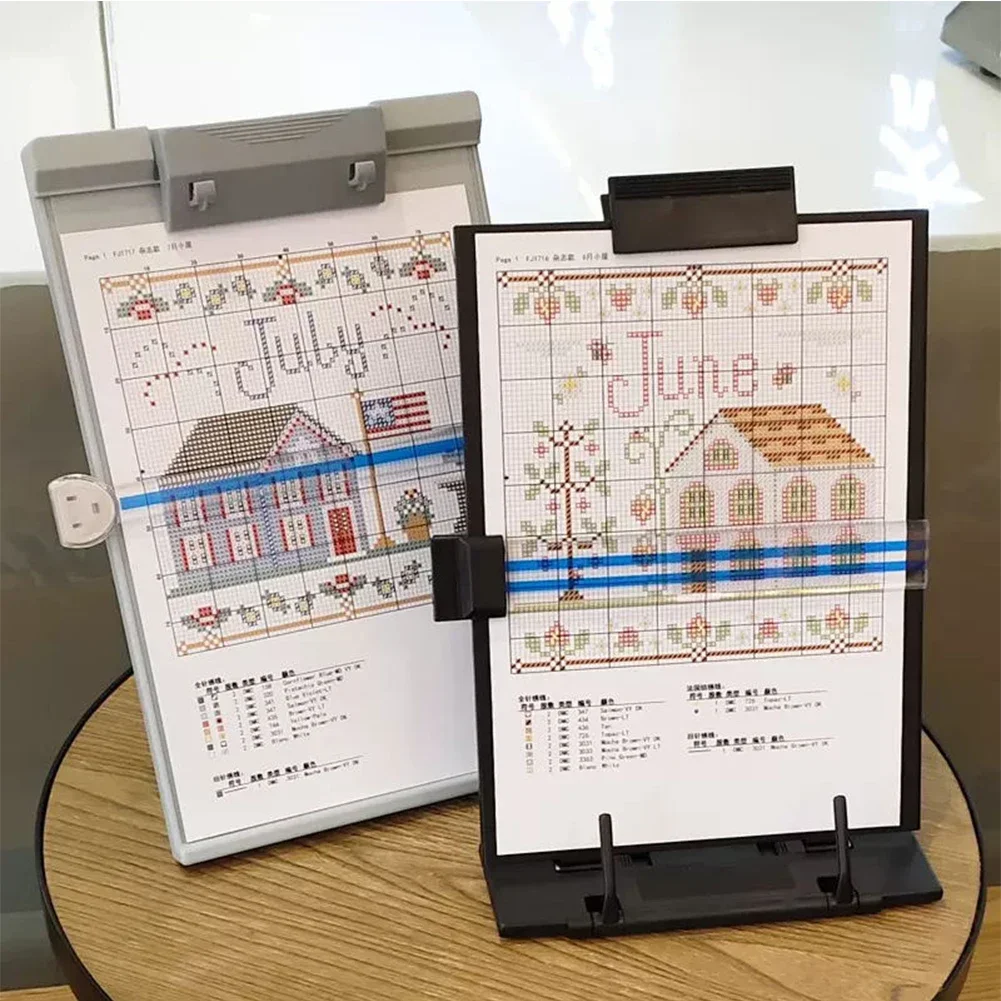 Page 1 FJ1717 杂志款 7月小屋
10 20 30 40 50 60 70
July
全针绣线:
符号 股数 类型 编号 颜色
2 DMC 158 Cornflower Blue-MD VY DK
2 DMC 320 Pistachio Green-MD
2 DMC 341 Blue Violet-LT
2 DMC 347 Salmon-VY DK
2 DMC 435 Brown-VY LT
2 DMC 744 Yellow-Pale
2 DMC 3031 Mocha Brown-VY DK
2 DMC Blanc White
回针绣线:
符号 股数 类型 编号 颜色
1 DMC 3031 Mocha Brown-VY DK
Page 1 FJ1716 杂志款 6月小屋
June
全针绣线:
符号 股数 类型 编号 颜色
2 DMC 347 Salmon-VY DK
2 DMC 434 Brown-LT
2 DMC 436 Tan
2 DMC 726 Topaz-LT
2 DMC 3031 Mocha Brown-VY DK
2 DMC 3033 Mocha Brown-VY LT
2 DMC 3363 Pine Green-MD
2 DMC Blanc White
法国结绣线:
符号 股数 类型 编号 颜色
1 DMC 726 Topaz-LT
1 DMC 3031 Mocha Brown-VY DK
回针绣线:
符号 股数 类型 编号 颜色
1 DMC 3031 Mocha Brown-VY DK